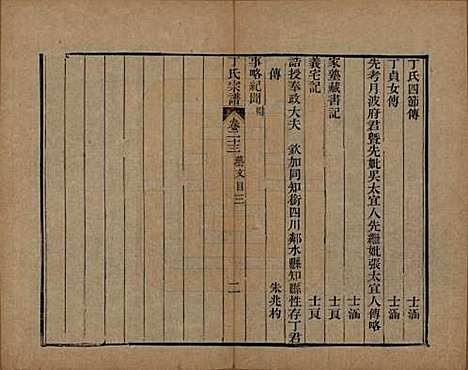 丁氏四節傳 士涵
丁貞女傳
先考月波府君曁先妣吳太宜人先繼妣張太宜人傳略
士涵
家塾藏書記 士頁
義宅記 士頁
誥授奉政大夫 欽加同知銜四川鄰水縣知縣性存丁君
傳 朱兆杓
事略紀聞
丁氏宗譜 卷二十三 藝文目三 二